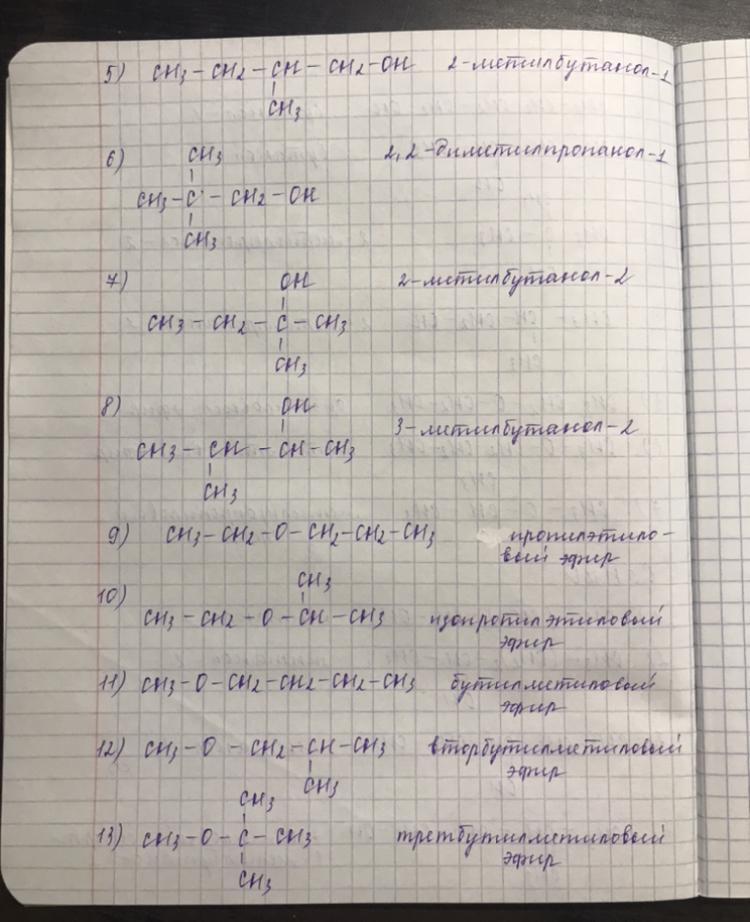 5) CH3 – CH2 – CH – CH2 – OH 2-метилбутанол-1
CH3
6) CH3 2,2-диметилпропанол-1
CH3 – C – CH2 – OH
CH3
7) OH 2-метилбутанол-2
CH3 – CH2 – C – CH3
CH3
8) OH
3-метилбутанол-2
CH3 – CH – CH – CH3
CH3
9) CH3 – CH2 – O – CH2 – CH2 – CH3 пропилэтило-
вый эфир
10) CH3
CH3 – CH2 – O – CH – CH3 изопропилэтиловый
эфир
11) CH3 – O – CH2 – CH2 – CH2 – CH3 бутилметиловый
эфир
12) CH3 – O – CH2 – CH – CH3 вторбутилметиловый
эфир
CH3
CH3
13) CH3 – O – C – CH3 третбутилметиловый
эфир
CH3